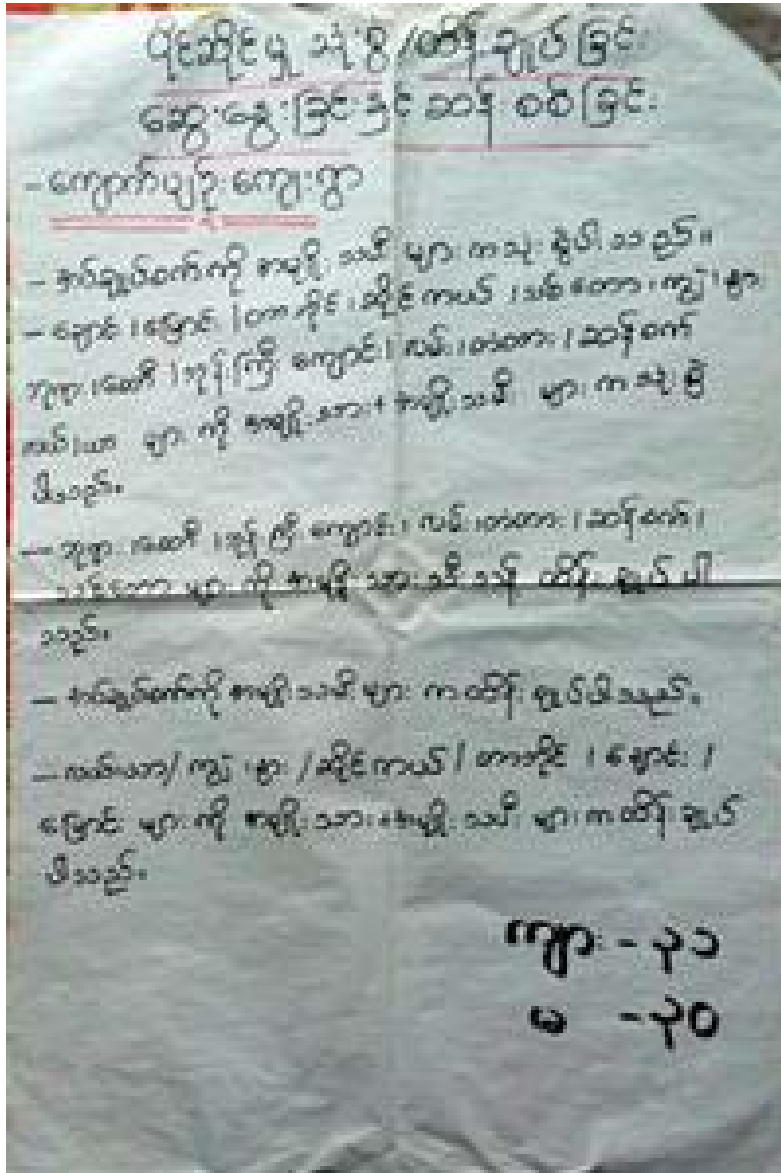 ပိုင်ဆိုင်မှု သုံးစွဲ/ထိန်းချုပ်ခြင်း
ဆွေးနွေးခြင်းနှင့် ဆန်းစစ်ခြင်း
- ကျောက်ပျဉ်းကျေးရွာ
- အပ်ချုပ်စက်ကို အမျိုးသမီးများကသုံးစွဲပါသည်။
- ချောင်း၊မြောင်း/တာတိုင်၊ဆိုင်ကယ်၊သစ်တော၊ကျွဲ၊နွား
ဘုရား၊စေတီ၊ဘုန်းကြီးကျောင်း၊လမ်း၊တံတား၊ဆန်စက်
လယ်ယာ များကို အမျိုးသား+အမျိုးသမီး များကသုံးစွဲ
ပါသည်။
- ဘုရား၊စေတီ၊ဘုန်းကြီးကျောင်း၊လမ်း၊တံတား၊ဆန်စက်၊
သစ်တော များကို အမျိုးသား ထိန်းချုပ်ပါ
သည်။
- အပ်ချုပ်စက်ကို အမျိုးသမီးများ ကထိန်းချုပ်ပါသည်။
- လယ်ယာ/ကျွဲ၊နွား/ဆိုင်ကယ်/တာတိုင်၊ချောင်း/
မြောင်းများကို အမျိုးသား+အမျိုးသမီးများကထိန်းချုပ်
ပါသည်။
ကျား - ၃၁
မ - ၃၀